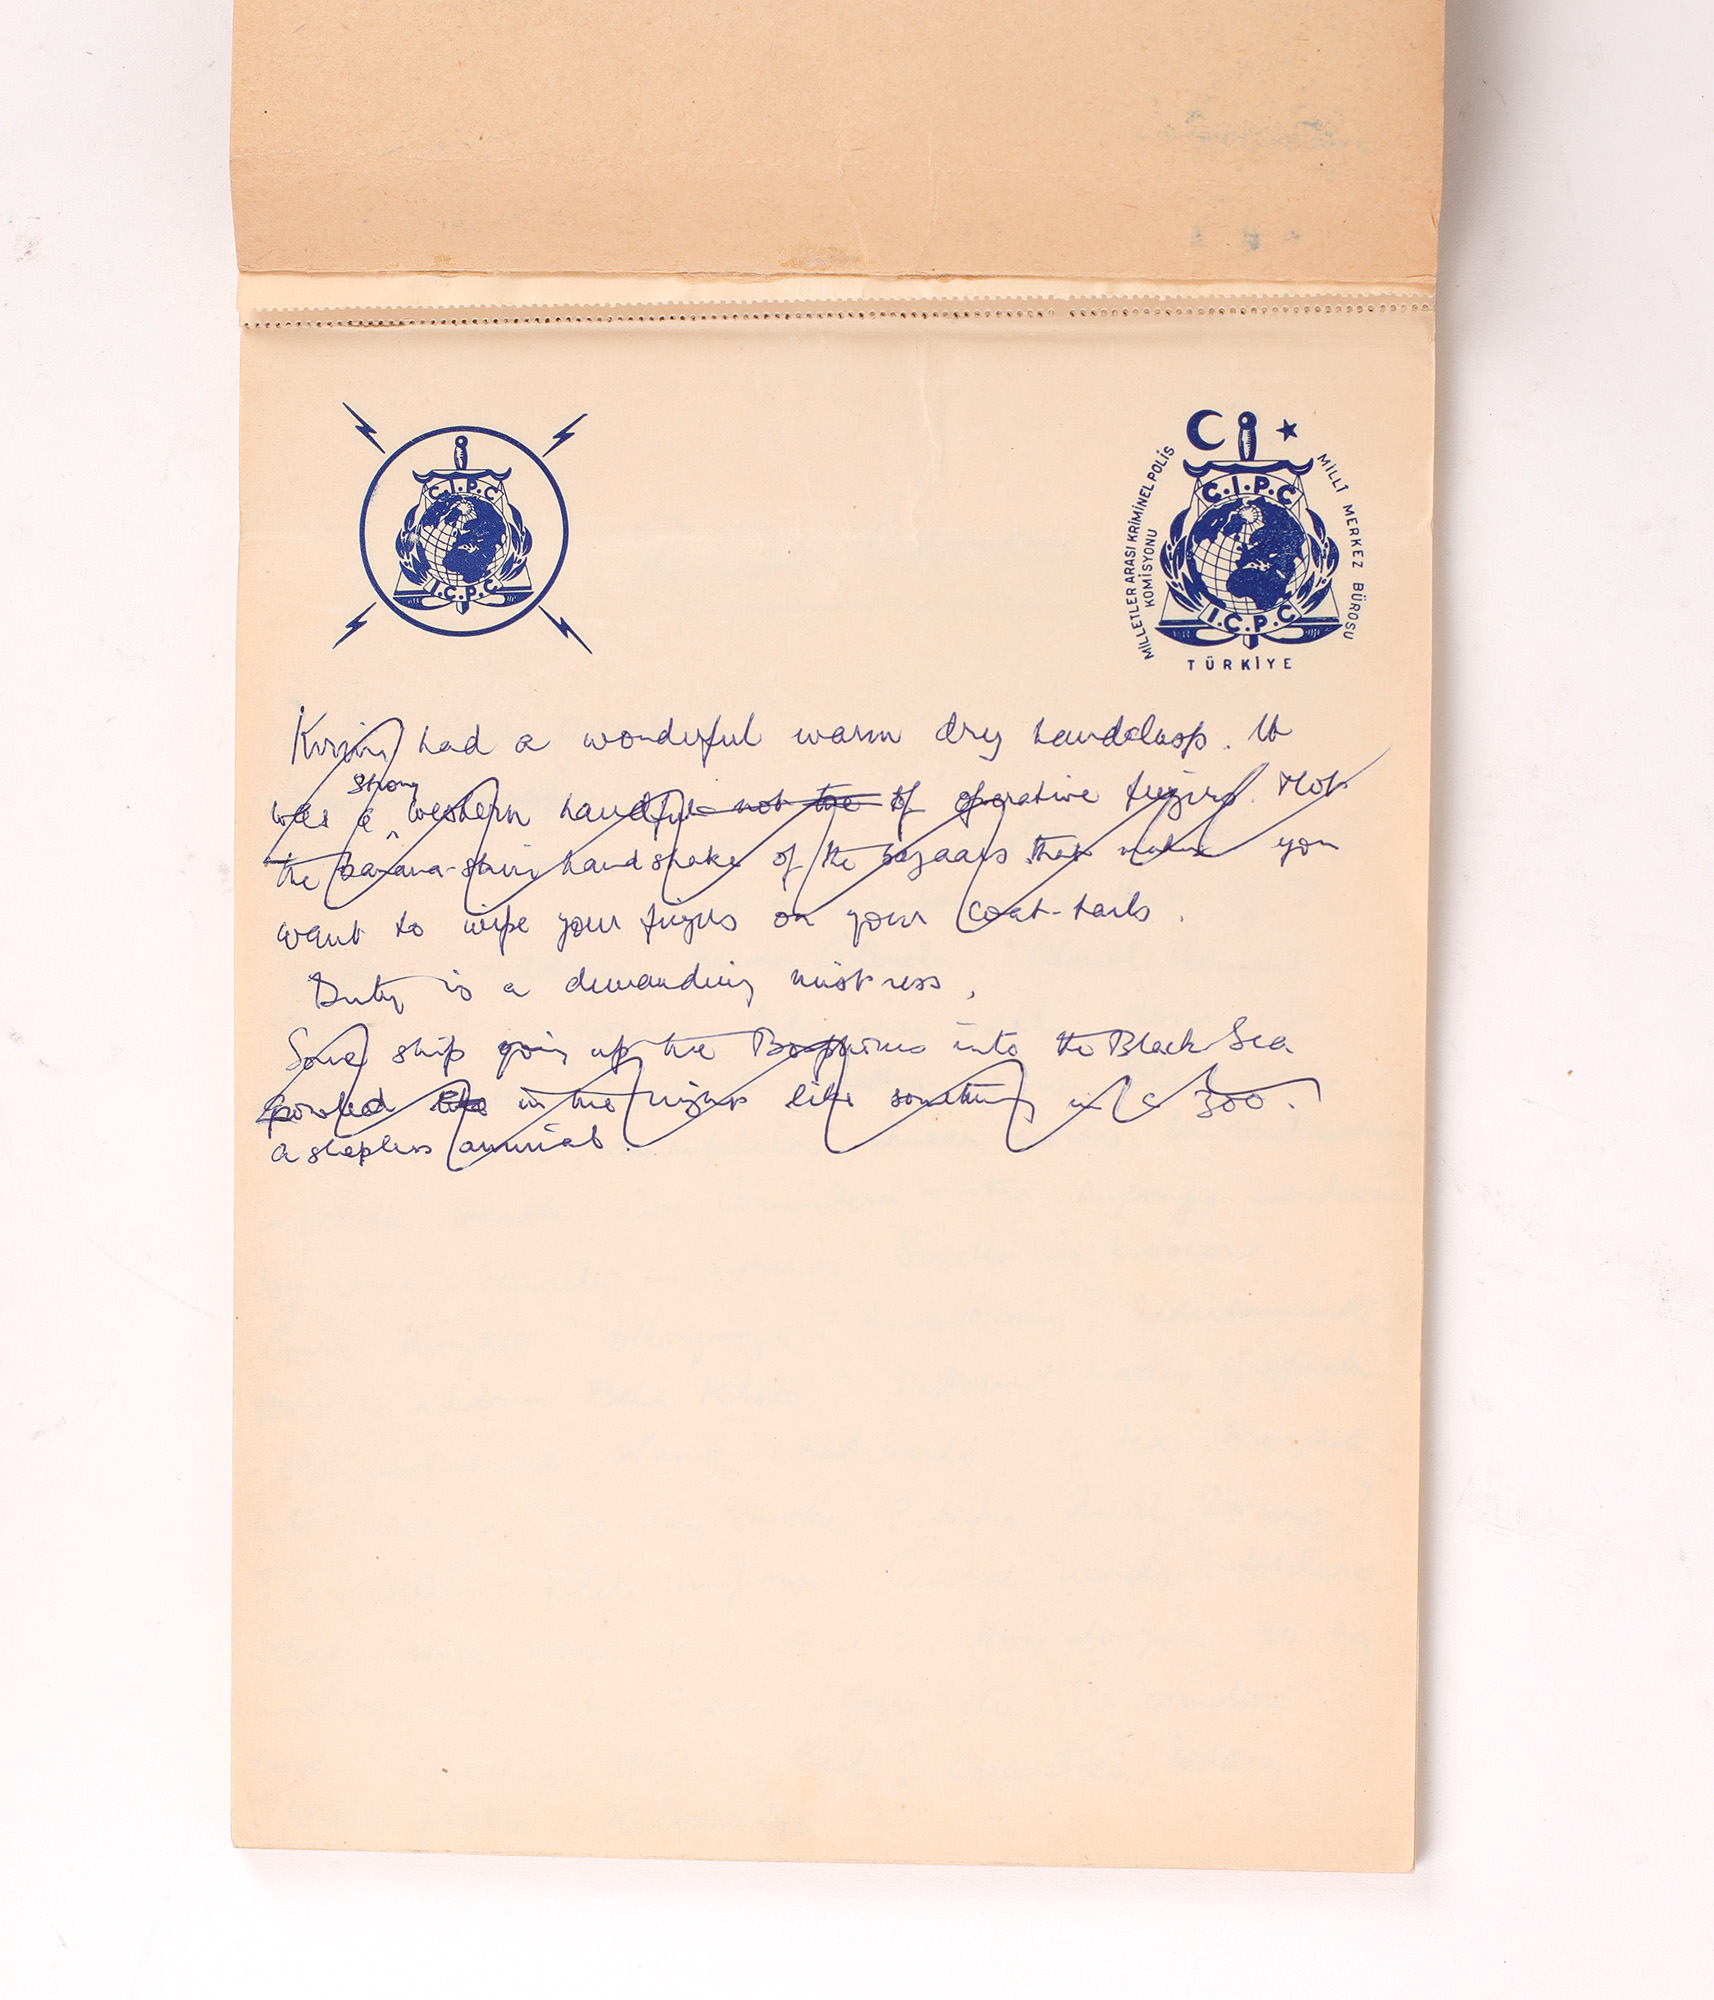 C.I.P.C
I.C.P.C
MİLLETLER ARASI KRİMİNEL POLİS
KOMİSYONU
C.I.P.C
I.C.P.C
MİLLİ MERKEZ BÜROSU
TÜRKİYE
had a wonderful warm dry handclasp. It
strong
was a western handful not the of operative fingers. Not
the banana-skin handshake of the bazaars that makes you
want to wipe your fingers on your coat-tails.
Duty is a demanding mistress.
Some ship going up the Bosphorus into the Black Sea
in the night like something in a zoo.
a sleepless animal.